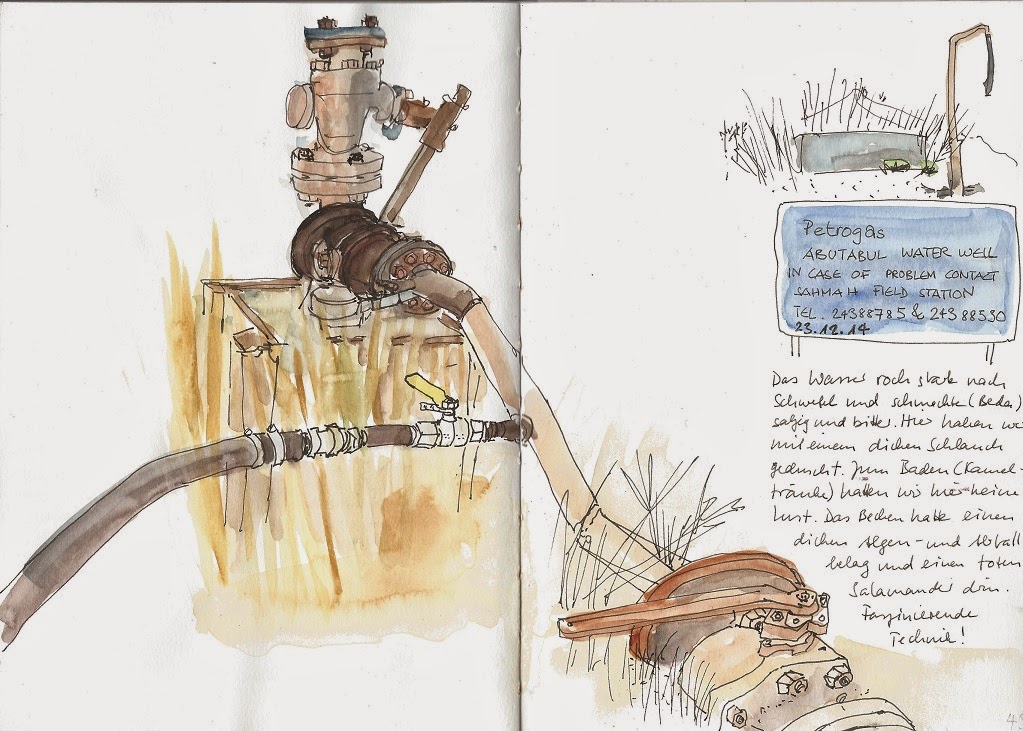 Petrogas
ABUTABUL WATER WELL
IN CASE OF PROBLEM CONTACT
SAHMAH FIELD STATION
TEL. 24388785 & 24388530
23.12.14
Das Wasser roch stark nach
Schwefel und schmeckte (Beda)
salzig und bitter. Hier haben wir
mit einem dicken Schlauch
geduscht. Zum Baden (Kamel-
tränke) hatten wir hier keine
Lust. Das Becken hatte einen
dicken Algen- und Abfall
belag und einen toten
Salamander drin.
Faszinierende
Technik!